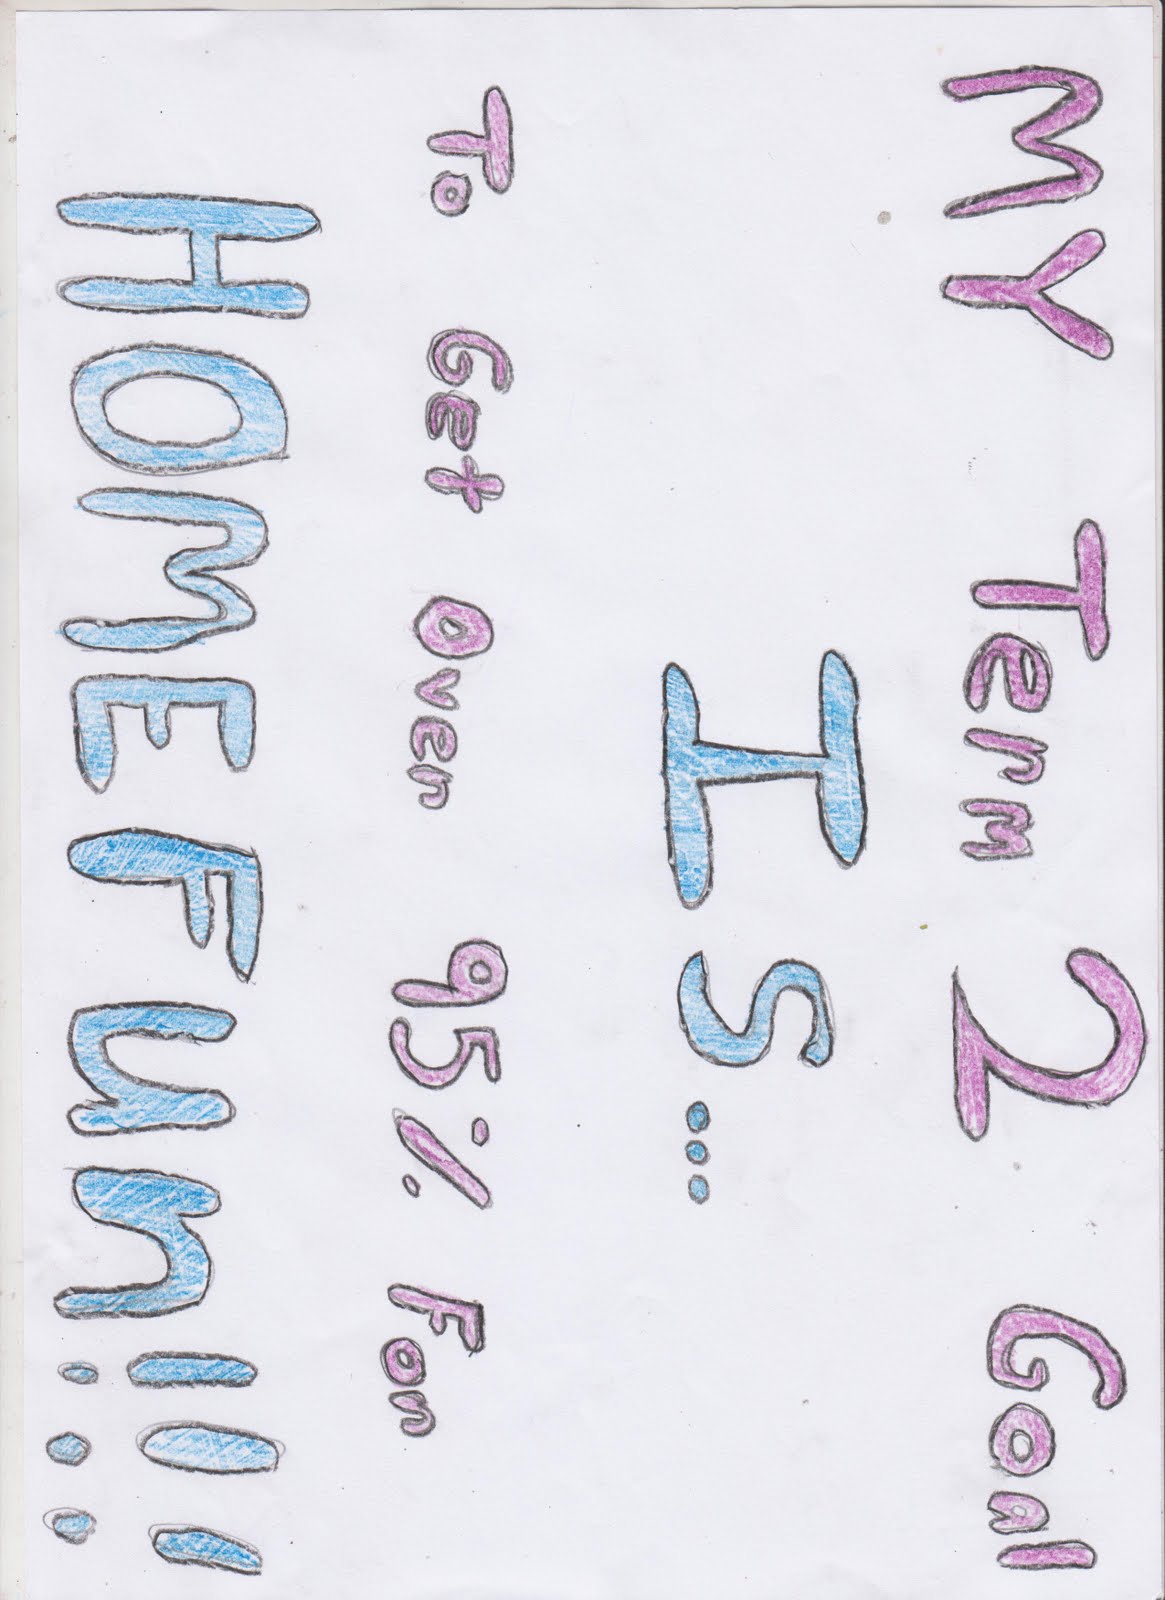 MY Term 2 Goal
Is...
To Get Over 95% For
HOMEFUn!!!